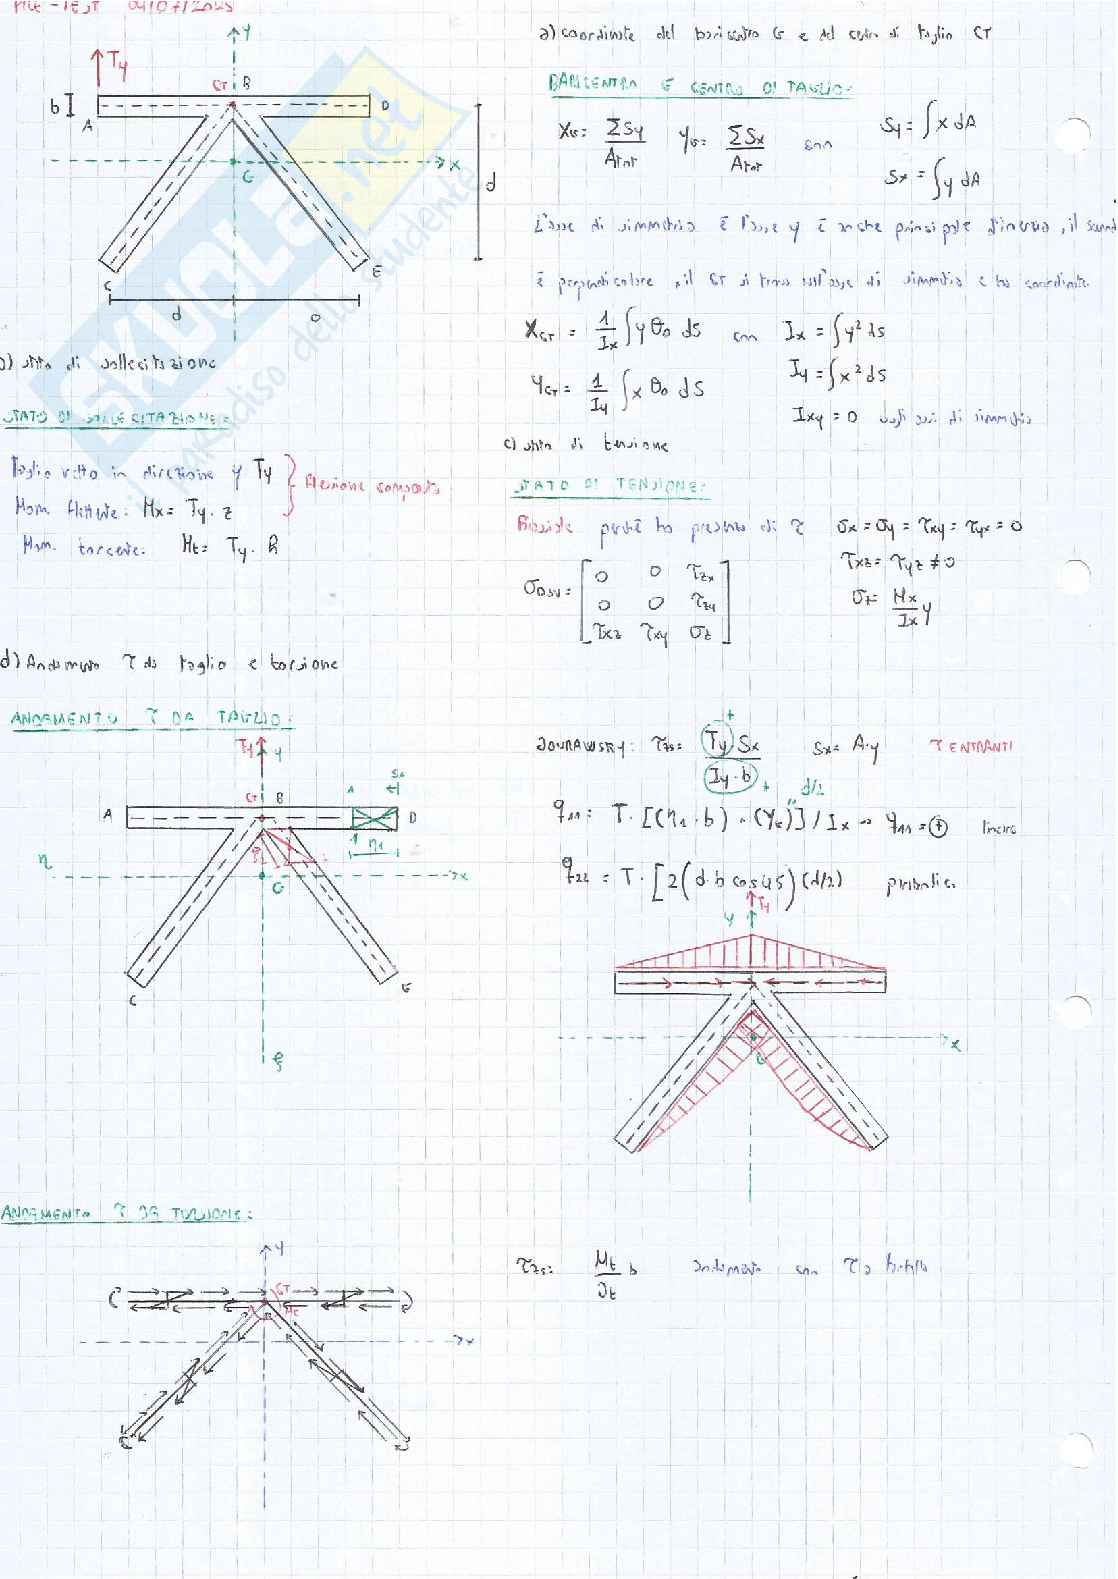 PRE-TEST 04/07/2023
a) coordinate del baricentro G e del centro di taglio CT
BARICENTRO E CENTRO DI TAGLIO:
y
Ty
CT B
b
A
D
x
G
d
C
E
d
XG = ΣSy / Atot
YG = ΣSx / Atot
con
Sy = ∫ x dA
Sx = ∫ y dA
L'asse di simmetria è l'asse y è anche principale d'inerzia, il
è perpendicolare, il CT si trova sull'asse di simmetria e ha coordinate
XCT = 1/Ix ∫ y θ0 ds con Ix = ∫ y² ds
YCT = 1/Iy ∫ x θ0 ds
Iy = ∫ x² ds
Ixy = 0 sugli assi di simmetria
b) stato di sollecitazione
STATO DI SOLLECITAZIONE:
Taglio retto in direzione y Ty
Mom. flettente: Mx = Ty · z
flessione composta
Mom. torcente: Mt = Ty · R
c) stato di tensione
STATO DI TENSIONE:
perché ho presenza di τ
σx = σy = τxy = τyx = 0
τxz = τyz ≠ 0
0 0 τzx
0 0 τzy
τxz τxy σz
σz = Mx/Ix y
d) Andamento τ da taglio e torsione
ANDAMENTO τ DA TAGLIO:
JOURAWSKY: τzs = Ty Sx / Iy · b
Sx = A · y
τ ENTRANTI
q11 = T · [(η1 · b) · (YG)] / Ix → q11 = + lineare
d/2
q22 = T · [2(d · b cos45)(d/2) parabolica
Ty y
CT B
A
D
η
G
x
C
E
ξ
η1
Ty
y
x
G
ANDAMENTO τ DA TORSIONE:
y
CT
Mt
x
τzs = Mt/Jt b andamento con τ a farfalla